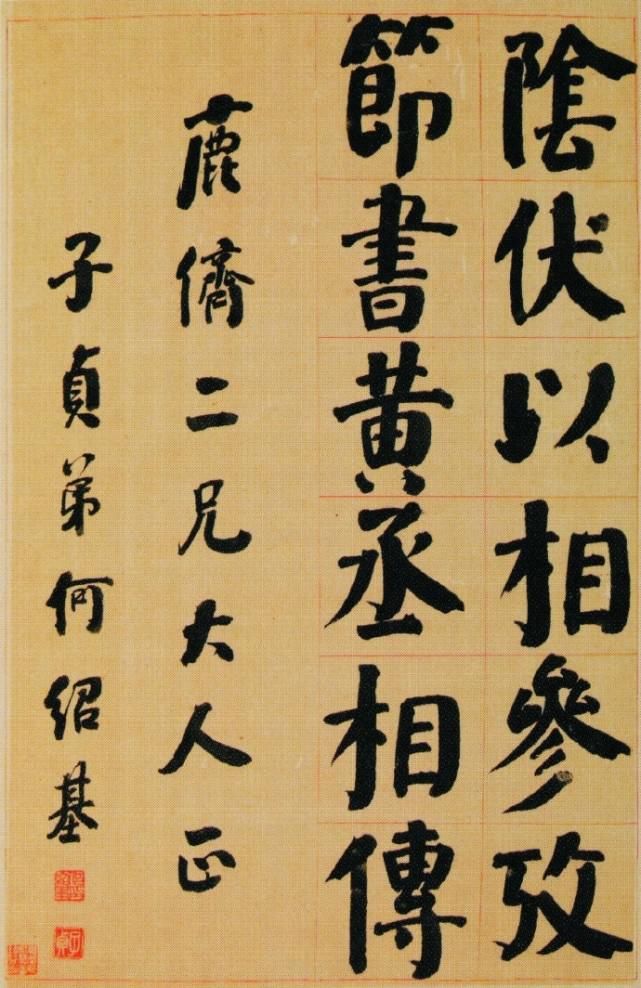 陰伏以相參攷
節書黄丞相傳
鹿儕二兄大人正
子貞弟何紹基